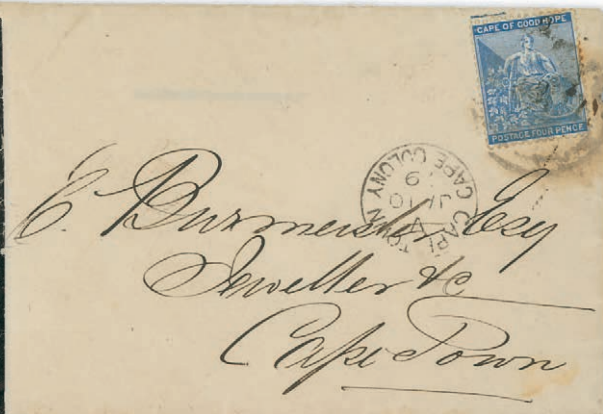 CAPE OF GOOD HOPE
POSTAGE FOUR PENCE
CAPE TOWN
CAPE COLONY
JU 10
C. Burmeister Esq
Jeweller &c
Cape Town